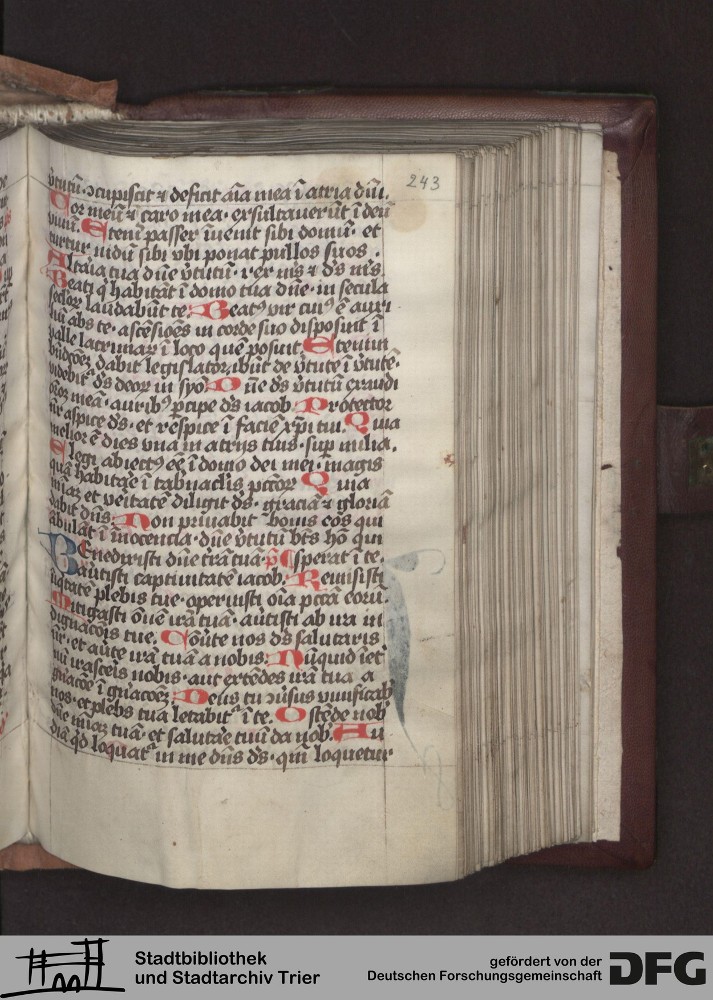 v̄tutū· ↄcupiscit ⁊ deficit aīa mea ī atria dn̄i.
Cor meū ⁊ caro mea· exsultauerūt ī deū
viuū. Eteni passer īuenit sibi domū· et
turtur nidū sibi vbi ponat pullos suos.
Altaīa tua dn̄e v̄tutū· rex mꝰ ⁊ ds̄ mꝰs
Beati q̇ habitāt ī domo tua dn̄e· in secula
sclor̄ laudabūt te. Beatꝰ vir cuiꝰ ē auxi
liū abs te· ascēsiōes in corde suo disposuit ī
valle lacrimaꝝ ī loco quē posuit Etenim
bn̄dcōeꝫ dabit legislator ibūt de v̄tute ī v̄tutē·
videbit᷑ ds̄ deoꝝ in syō Dn̄e ds̄ v̄tutū exaudi
or̄oꝫ meā· auribꝰ ꝑcipe ds̄ iacob. Protector
nr̄ aspice ds̄· et respice ī faciē xp̄i tui. Quia
melior ē dies vna in atrijs tuis· sup̄ milia.
Elegi abiectꝰ eē ī domo dei mei· magis
quā habitar̄e ī tab̄naclis pccōꝝ Quia
mīaꝫ et veitatē diligit ds̄· graciā ⁊ gloriā
dabit dn̄s. Non priuabit bonis eos qui
ābulāt ī īnocencia· dn̄e v̄tutū bt̄s hō qui
BEnedixisti dn̄e tr̄ā tuā· p̄s sperat ī te.
auūtisti captiuitatē iacob. Remisisti
iīqtatē plebis tue· operuisti oīa pccā eorū.
Mitigasti ōnē irā tuā· auūtisti ab ira in
dignacōīs tue. Cōūte nos ds̄ salutaris
nr̄· et aūte irā tuā a nobis. Nūquid īet̄
nū irasceīs nobis· aut extēdes irā tuā a
gn̄acōe ī gn̄acōeꝫ Deus tu ↄūsus viuificab
nos· et plebs tua letabit᷑ ī te. Ostēde nob̄
dn̄e mīaꝫ tuā· et salutar̄e tuū da nob̄. Au
diā qd̄ loquat᷑ in me dn̄s ds̄· qm̄ loquetur
243
Stadtbibliothek
und Stadtarchiv Trier
gefördert von der
Deutschen Forschungsgemeinschaft
DFG